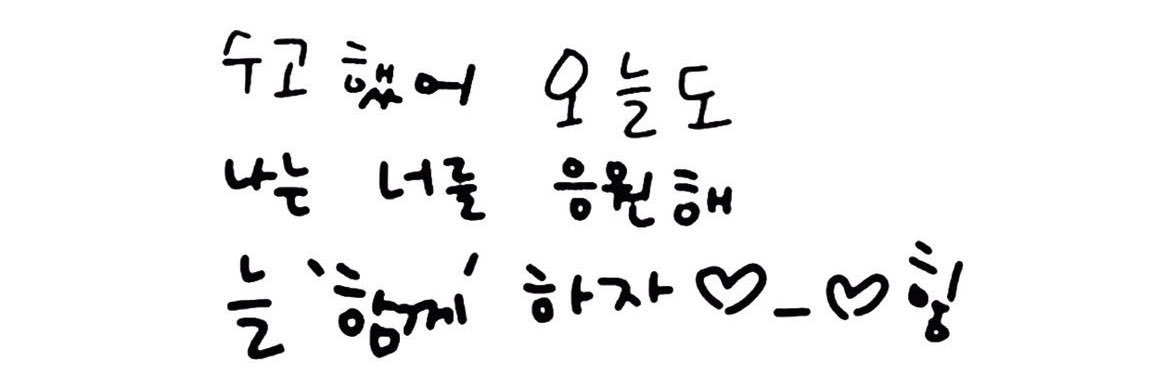 수고했어 오늘도
나는 너를 응원해
늘 '함께' 하자♡_♡힝